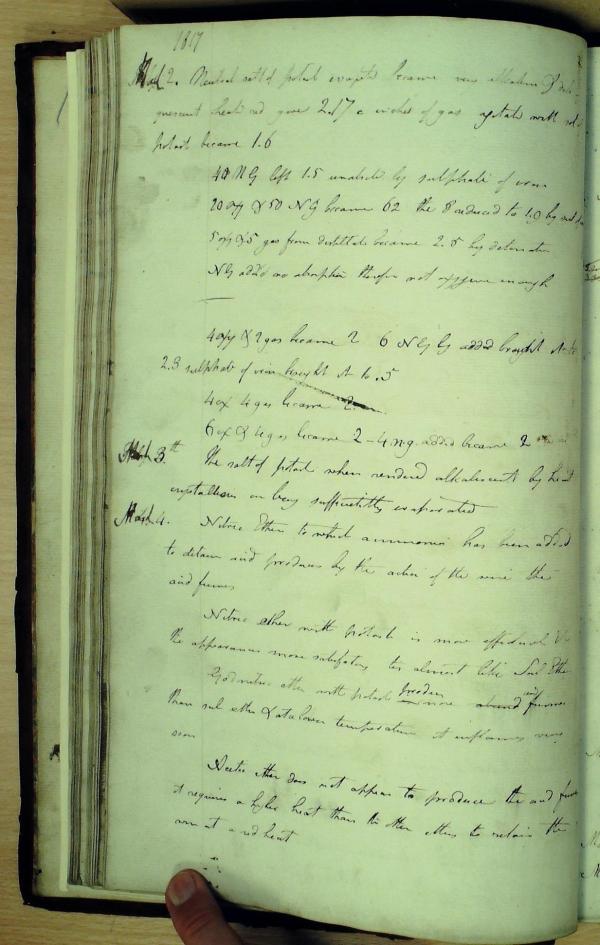 1817
March 2. Neutral salt of potash evaporated became very alkaline & del
quescent heated red gave 2.17 c inches of gas agitated with sol
potash became 1.6
40 NG left 1.5 unabsbd by sulphate of iron
20 oxy & 50 NG became 62 the 8 reduced to 1.0 by
5 oxy & 5 gas from distillate became 2.5 by detonation
NG added no absorption therefore not oxygene enough
4 oxy & 2 gas became 2 6 NG added brought it to
2.3 sulphate of iron brought it to .5
4 ox 4 gas became 2
6 ox & 4 gas became 2 – 4 n.g. added became 2
March 3th The salt of potash when rendered alkalescent by heat
crystallises on being sufficiently evaporated
March 4. Nitric Ether to which ammonia has been added
to detain acid produces by the action of the wire the
acid fumes
Nitric ether with potash is more effectual &
the appearances more satisfactory tis almost like Sul Ether
Good nitric ether with potash produces more acid fumes
than sul ether & at a lower temperature it inflames very
soon
Acetic ether does not appear to produce the acid fumes
it requires a higher heat than the other ethers to retain the
wire at a red heat